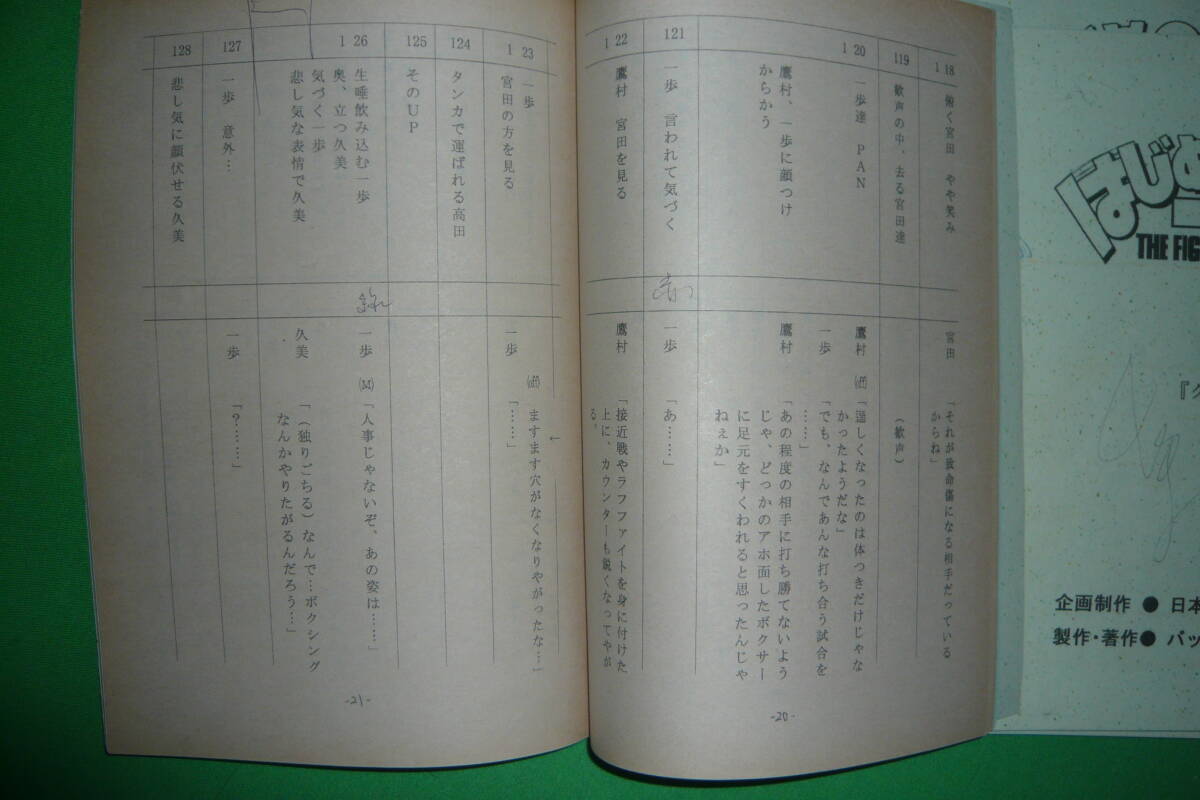 118
俯く宮田 やや笑み
宮田
「それが致命傷になる相手だっている
からね」
119
歓声の中、去る宮田達
(歓声)
120
一歩達 PAN
鷹村 (off)
「逞しくなったのは体つきだけじゃな
かったようだな」
一歩
「でも、なんであんな打ち合う試合を
……」
鷹村、一歩に顔つけ
からかう
鷹村
「あの程度の相手に打ち勝てないよう
じゃ、どっかのアホ面したボクサー
に足元をすくわれると思ったんじゃ
ねぇか」
121
一歩 言われて気づく
一歩
「あ……」
122
鷹村 宮田を見る
鷹村
「接近戦やラフファイトを身に付けた
上に、カウンターも鋭くなってやが
る。
-20-
123
一歩
宮田の方を見る
(off)
ますます穴がなくなりやがったな…」
一歩
「……」
124
タンカで運ばれる高田
125
そのUP
126
生唾飲み込む一歩
奥、立つ久美
気づく一歩
悲し気な表情で久美
一歩 (M)
「人事じゃないぞ、あの姿は……」
久美
「(独りごちる)なんで…ボクシング
なんかやりたがるんだろう…」
127
一歩 意外…
一歩
「?……」
128
悲し気に顔伏せる久美
-21-
はじめ
THE FIG
『ク
企画制作 ● 日本
製作・著作 ● バッ